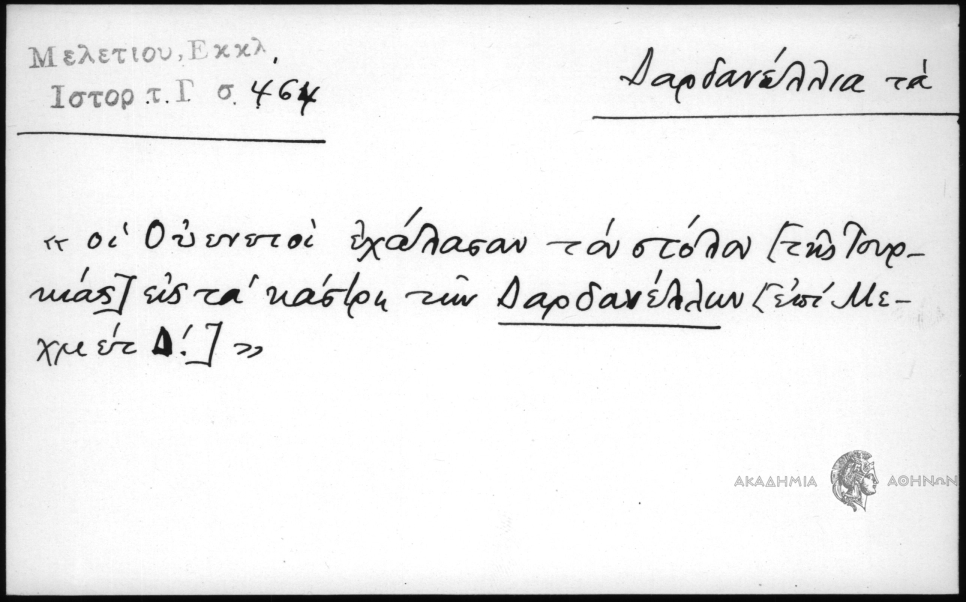 Μελετίου, Εκκλ.
Ιστορ. τ. Γ σ. 464
Δαρδανέλλια τά
« οἱ Οὐενετοὶ ἐχάλασαν τὸν στόλον [τῆς Τουρ-
κιάς] εἰς τὰ κάστρη τῶν Δαρδανέλλων [ἐπὶ Με-
χμὲτ Δ΄.] »
ΑΚΑΔΗΜΙΑ ΑΘΗΝΩΝ